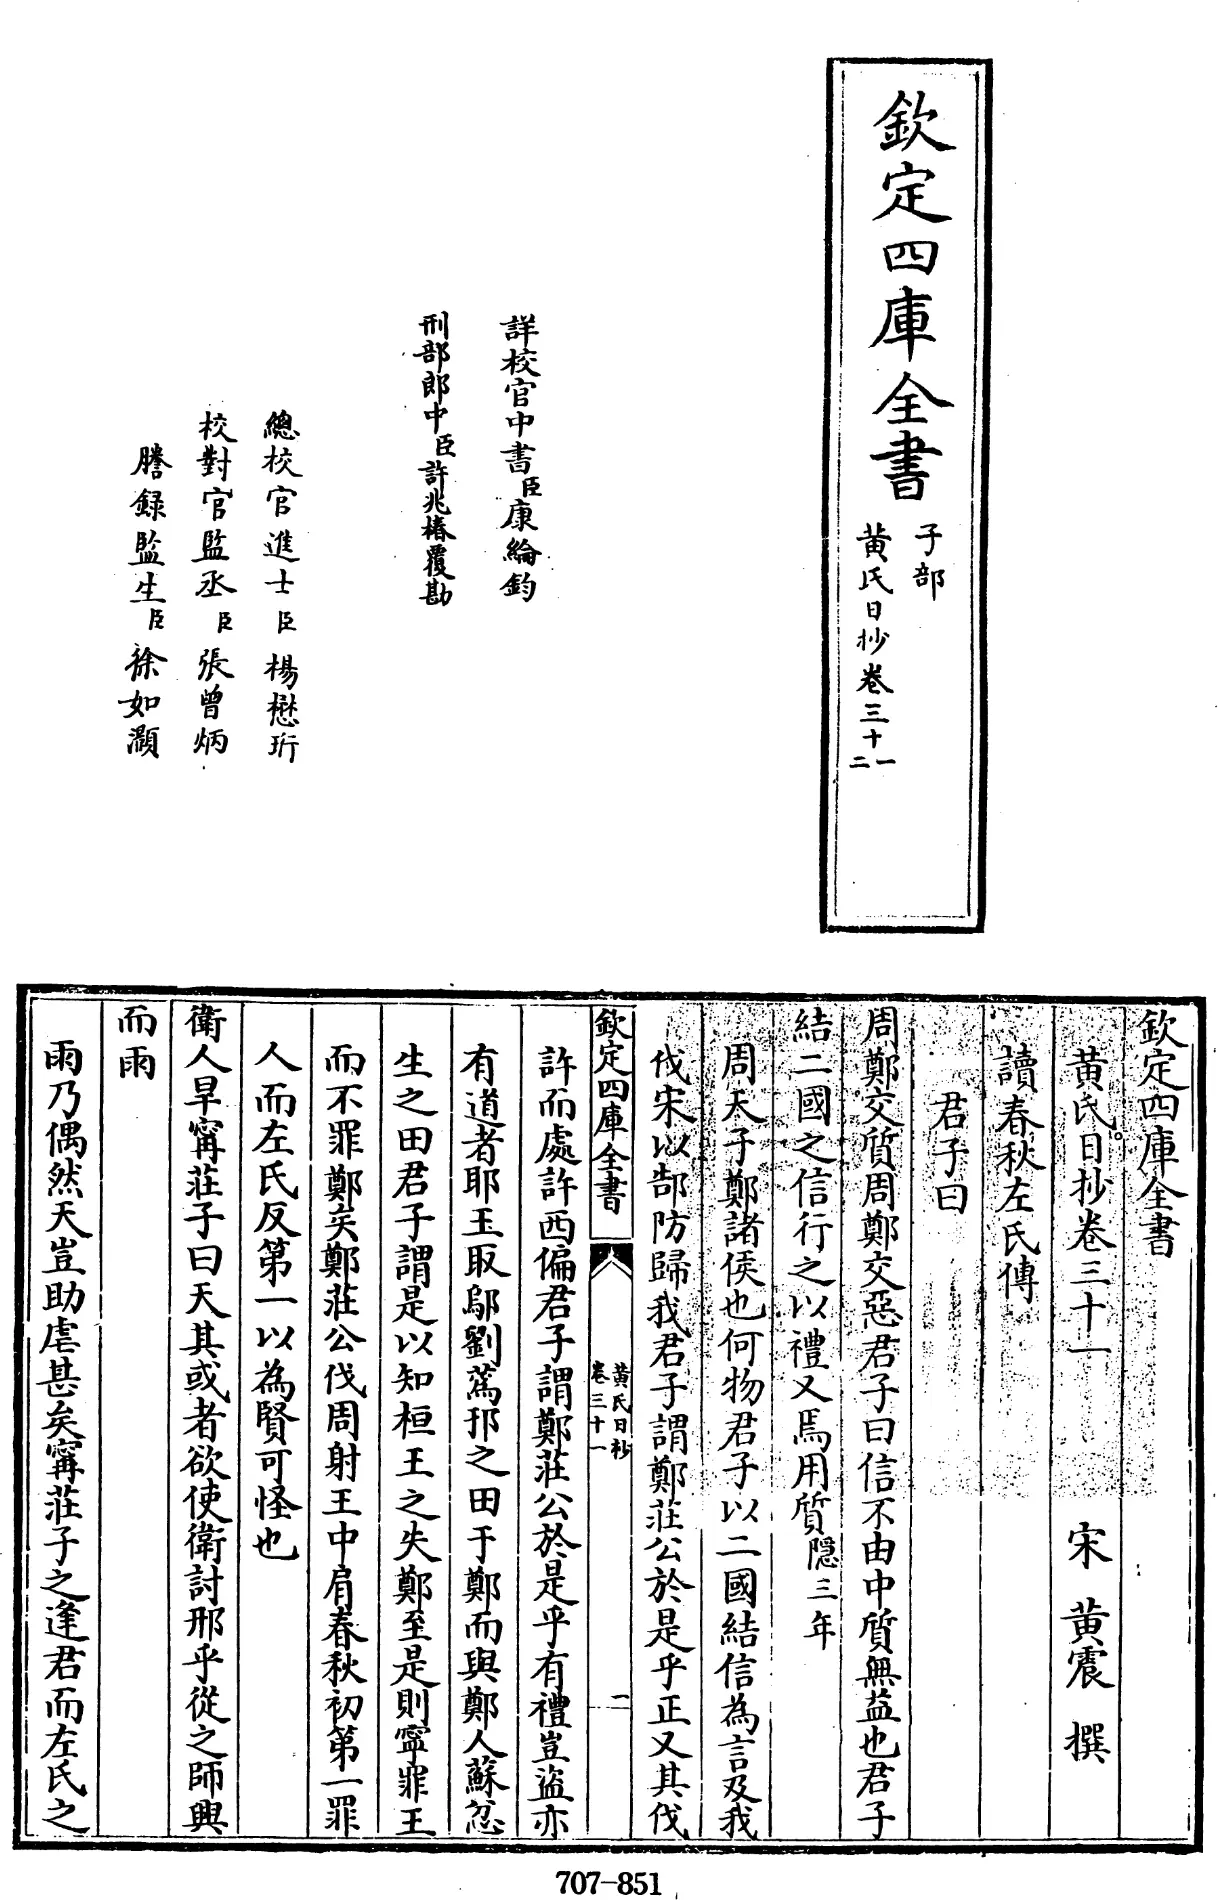 欽定四庫全書
子部
黄氏日抄卷三十一
二
詳校官中書臣康綸鈞
刑部郎中臣許兆椿覆勘
總校官進士臣楊懋珩
校對官監丞臣張曾炳
謄錄監生臣徐如灝
欽定四庫全書
黄氏日抄卷三十一 宋 黄震 撰
讀春秋左氏傳
君子曰
周鄭交質周鄭交惡君子曰信不由中質無益也君子
結二國之信行之以禮又焉用質隱三年
周天子鄭諸侯也何物君子以二國結信為言及我
伐宋以郜防歸我君子謂鄭莊公於是乎正又其伐
欽定四庫全書
黄氏日抄
卷三十一
一
許而處許西偏君子謂鄭莊公於是乎有禮豈盜亦
有道者耶王取鄔劉蒍邘之田于鄭而與鄭人蘇忿
生之田君子謂是以知桓王之失鄭至是則寧罪王
而不罪鄭矣鄭莊公伐周射王中肩春秋初第一罪
人而左氏反第一以為賢可怪也
衛人旱甯莊子曰天其或者欲使衛討邢乎從之師興
而雨
雨乃偶然天豈助虐甚矣甯莊子之逢君而左氏之
707-851